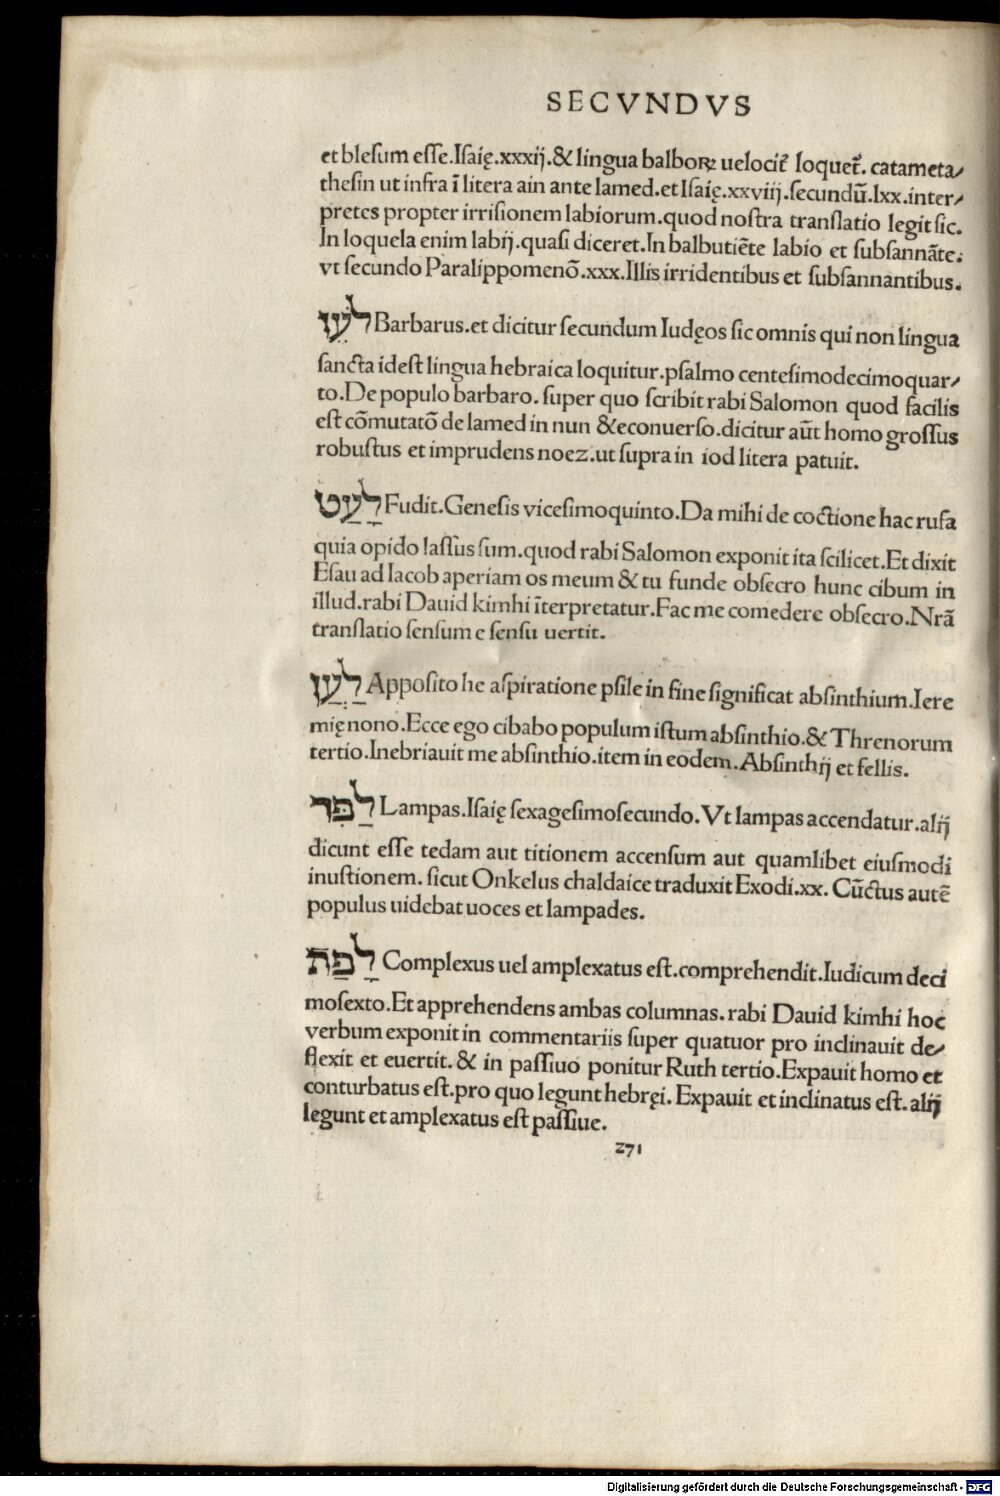 SECVNDVS
et blesum esse.Isaię.xxxij.& lingua balboꝝ uelocit̃ loquet̃. catameta⸗
thesin ut infra ĩ litera ain ante lamed.et Isaię.xxviij.secundũ.lxx.inter⸗
pretes propter irrisionem labiorum.quod nostra translatio legit sic.
In loquela enim labij.quasi diceret.In balbutiẽte labio et subsannãte.
vt secundo Paralippomenõ.xxx.Illis irridentibus et subsannantibus.
לֹעֵז Barbarus.et dicitur secundum Iudęos sic omnis qui non lingua
sancta idest lingua hebraica loquitur.psalmo centesimodecimoquar⸗
to.De populo barbaro. super quo scribit rabi Salomon quod facilis
est cõmutatõ de lamed in nun & econuerso.dicitur aũt homo grossus
robustus et imprudens noez.ut supra in iod litera patuit.
לָעַט Fudit.Genesis vicesimoquinto.Da mihi de coctione hac rufa
quia opido lassus sum.quod rabi Salomon exponit ita scilicet.Et dixit
Esau ad Iacob aperiam os meum & tu funde obsecro hunc cibum in
illud.rabi Dauid kimhi ĩterpretatur.Fac me comedere obsecro.Nrã
translatio sensum e sensu uertit.
לַעֲן Apposito he aspiratione psile in fine significat absinthium.Iere
mię nono.Ecce ego cibabo populum istum absinthio.& Threnorum
tertio.Inebriauit me absinthio.item in eodem.Absinthij et fellis.
לַפִּד Lampas.Isaię sexagesimosecundo.Vt lampas accendatur.alij
dicunt esse tedam aut titionem accensum aut quamlibet eiusmodi
inustionem. sicut Onkelus chaldaice traduxit Exodi.xx. Cũctus autẽ
populus uidebat uoces et lampades.
לָפַת Complexus uel amplexatus est.comprehendit.Iudicum deci
mosexto.Et apprehendens ambas columnas. rabi Dauid kimhi hoc
verbum exponit in commentariis super quatuor pro inclinauit de⸗
flexit et euertit. & in passiuo ponitur Ruth tertio.Expauit homo et
conturbatus est.pro quo legunt hebręi. Expauit et inclinatus est. alij
legunt et amplexatus est passiue.
271
Digitalisierung gefördert durch die Deutsche Forschungsgemeinschaft - DFG